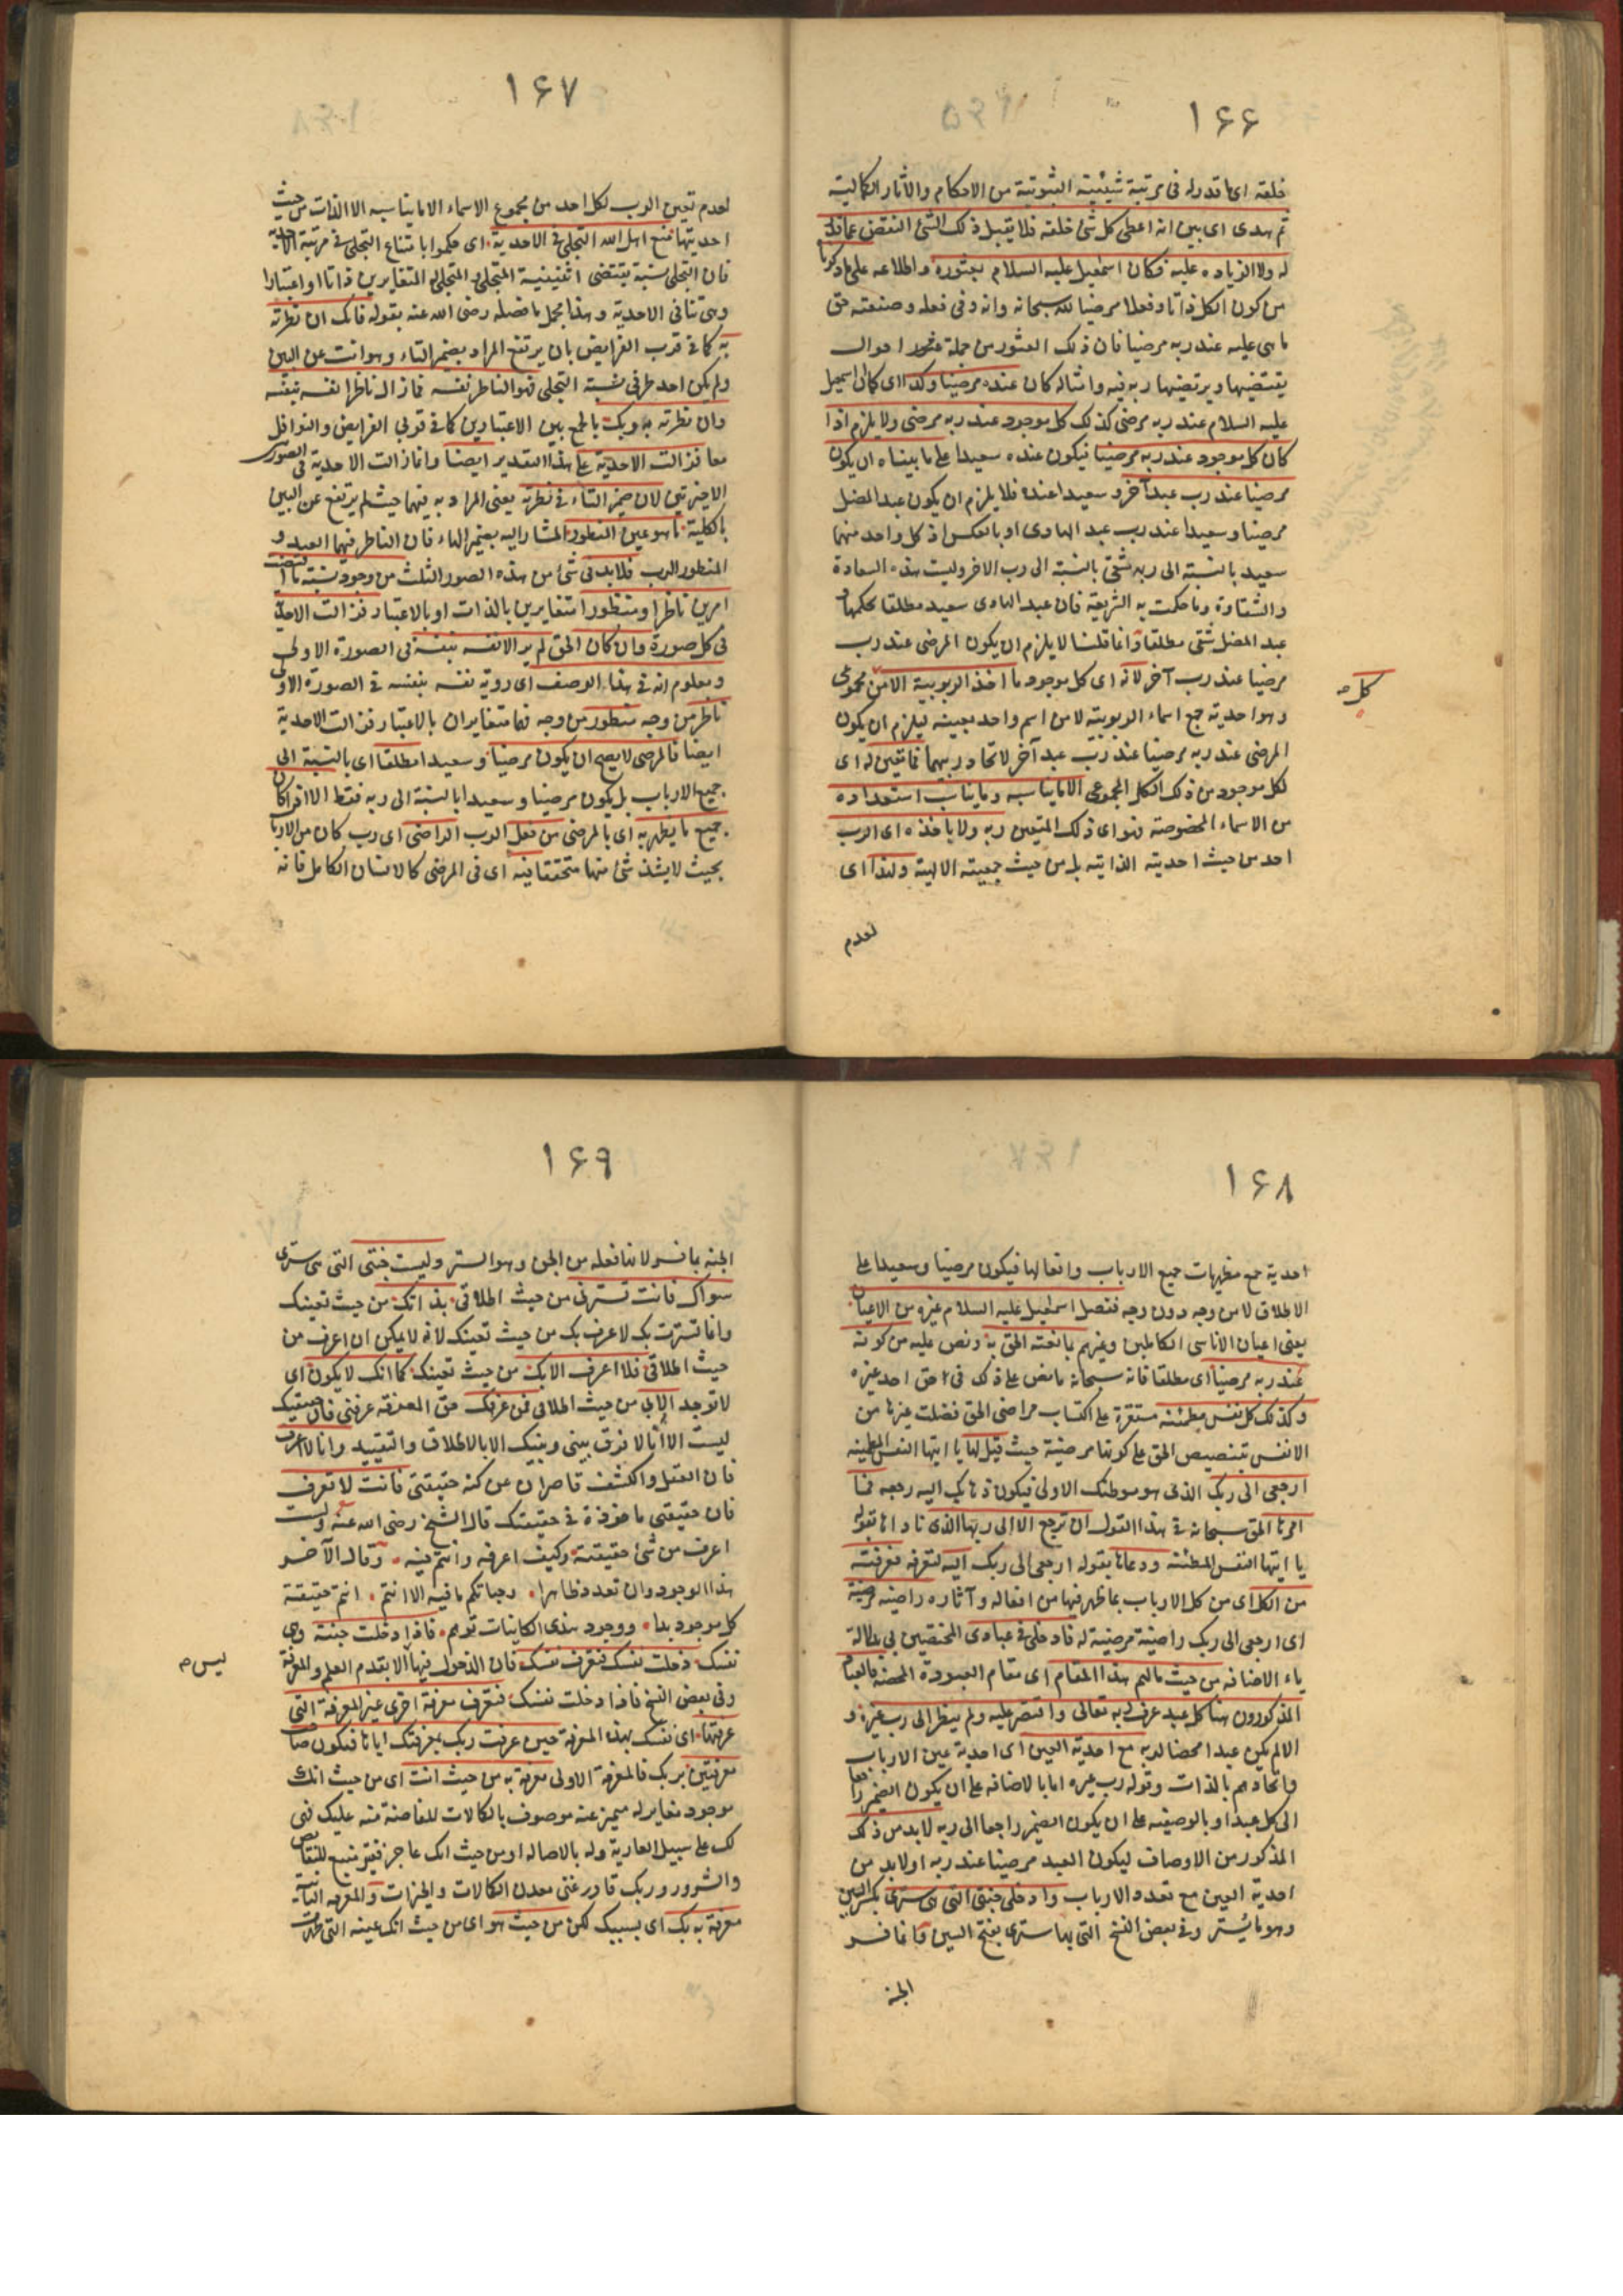 ١٦٦
خلقه اى ما قدر له فى مرتبة شيئيته الثبوتية من الاحكام والآثار الكمالية
ثم هدى اى بين انه اعطى كل شئ خلقه فلا يقبل ذلك الشئ النقص عما قدر
له ولا الزياده عليه فكان اسمعيل عليه السلام بعثوره واطلاعه على ما ذكرنا
من كون الكل ذاتا وفعلا مرضيا لله سبحانه وانه وفى فعله وصنعته حق
ما هى عليه عند ربه مرضيا فان ذلك العثور من جملة احوال
يقتضيها ويرتضيها ربه فيه وامثاله كان عنده مرضيا وكذا اى كما ان اسمعيل
عليه السلام عند ربه مرضى كذلك كل موجود عند ربه مرضى ولا يلزم اذا
كان كل موجود عند ربه مرضيا فيكون عنده سعيدا على ما بيناه ان يكون
مرضيا عند رب عبد آخر و سعيدا عنده فلا يلزم ان يكون عبد المضل
مرضيا وسعيدا عند رب عبد الهادى او بالعكس اذ كل واحد منهما
سعيد بالنسبة الى ربه شقى بالنسبة الى رب الاخر وليست هذه السعادة
والشقاوة وما حكمت به الشريعة فان عبد الهادى سعيد مطلقا بحكمها و
عبد المضل شقى مطلقا وانما قلنا لا يلزم ان يكون المرضى عند رب
مرضيا عند رب آخر لانه اى كل موجود ما اخذ الربوبية الا من مجموعى
كل صح
وهو احدية جمع اسماء الربوبية لا من اسم واحد بعينه ليلزم ان يكون
المرضى عند ربه مرضيا عند رب عبد آخر لاتحاد ربهما فما تعين له اى
لكل موجود من ذلك الكل المجموعى الا ما يناسبه وما يناسب استعداده
من الاسماء المخصوصة فهو اى ذلك المتعين ربه ولا ياخذه اى الرب
احد من حيث احديته الذاتية بل من حيث جمعيته الالهية ولهذا اى
لعدم
١٦٧
لعدم تعين الرب لكل احد من مجموع الاسماء الا ما يناسبه الا الذات من حيث
احديتها منع اهل الله التجلى فى الاحدية اى حكموا بامتناع التجلى فى مرتبة الاحدية
فان التجلى نسبة يقتضى اثنينية المتجلى والمتجلى له المتغايرين ذاتا او اعتبارا
وهى تنافى الاحدية وهذا مجمل ما فصله رضى الله عنه بقوله فانك ان نظرته
به كما فى قرب الفرايض بان يرتفع المراد بضمير التاء وهو انت عن البين
ولم يكن احد طرفى نسبة التجلى فهو الناظر نفسه فما زال ناظرا نفسه بنفسه
وان نظرته به وبك بالجمع بين الاعتبارين كما فى قربى الفرايض والنوافل
معا فزالت الاحدية على هذا التقدير ايضا وانما زالت الاحدية فى الصورتين
الاخيرتين لان ضمير التاء فى نظرته يعنى المراد به فيهما حيث لم يرتفع عن البين
بالكلية ما هو عين المنظور المشار اليه بضمير الهاء فان الناظر فيهما العبد و
المنظور الرب فلا بد فى شئ من هذه الصور الثلث من وجود نسبة ما اقتضت
امرين ناظرا ومنظورا متغايرين بالذات او بالاعتبار فزالت الاحدية
فى كل صورة وان كان الحق لم ير الا نفسه بنفسه فى الصورة الاولى
ومعلوم انه فى هذا الوصف اى روية نفسه بنفسه فى الصورة الاولى
ناظر من وجه منظور من وجه فهما متغايران بالاعتبار فزالت الاحدية
ايضا فالمرضى لا يصح ان يكون مرضيا وسعيدا مطلقا اى بالنسبة الى
جميع الارباب بل يكون مرضيا وسعيدا بالنسبة الى ربه فقط الا اذا كان
جميع ما يظهر به اى بالمرضى من فعل الرب الراضى اى رب كان من الارباب
بحيث لا يشذ شئ منها متحققا فيه اى فى المرضى كالانسان الكامل فانه
١٦٨
احدية جمع مظهريات جميع الارباب وافعالها فيكون مرضيا وسعيدا على
الاطلاق لا من وجه دون وجه ففضل اسمعيل عليه السلام غيره من الاعيان
يعنى اعيان الاناسى الكاملين وغيرهم بما نعته الحق به ونص عليه من كونه
عند ربه مرضيا اى مطلقا فانه سبحانه ما نص على ذلك فى حق احد غيره
وكذلك كل نفس مطمئنة مستقرة على اكتساب مراضى الحق فضلت غيرها من
الانفس بتنصيص الحق على كونها مرضية حيث قيل لها يا ايتها النفس المطمئنة
ارجعى الى ربك الذى هو موطنك الاولى فيكون ذهابك اليه رجعة فما
امرها الحق سبحانه فى هذا القول ان ترجع الا الى ربها الذى ناداها بقوله
يا ايتها النفس المطمئنة ودعاها بقوله ارجعى الى ربك اليه لتعرفه فعرفته
من الكل اى من كل الارباب بما ظهر فيها من افعاله وآثاره راضية مرضية
اى ارجعى الى ربك راضية مرضية له فادخلى فى عبادى المختصين بى بدلالة
ياء الاضافة من حيث مالهم هذا المقام اى مقام العبودة المحضة فالعباد
المذكورون هنا كل عبد عرف ربه تعالى واقتصر عليه ولم ينظر الى رب غيره و
الا لم يكن عبدا محضا لربه مع احدية العين اى احدية عين الارباب
واتحادهم بالذات وقوله رب غيره اما بالاضافه على ان يكون الضمير راجعا
الى كل عبد او بالوصفيه على ان يكون الضمير راجعا الى ربه لا بد من ذلك
المذكور من الاوصاف ليكون العبد مرضيا عند ربه او لا بد من
احدية العين مع تعدد الارباب وادخلى جنتى التى هى سترى بكسر السين
وهو ما يُستر وفى بعض النسخ التى بها سترى بفتح السين وانما فسر
الجنة
١٦٩
الجنة بما فسر لانها فعلة من الجن وهو الستر وليست جنتى التى هى سترى
سواك فانت تسترنى من حيث اطلاقى بذاتك من حيث تعينك
وانما تسترت بك لا عرف بك من حيث تعينك لانه لا يمكن ان اعرف من
حيث اطلاقى فلا اعرف الا بك من حيث تعينك كما انك لا يكون اى
لا توجد الا بى من حيث اطلاقى فمن عرفك حق المعرفة عرفنى فان حقيقتك
ليست الا انا لا فرق بينى وبينك الا بالاطلاق والتقييد وانا لا اعرف
فان العقل والكشف قاصران عن كنه حقيقتى فانت لا تعرف
فان حقيقتى ماخوذة فى حقيقتك قال الشيخ رضى الله عنه ولست
اعرف من شئ حقيقته وكيف اعرفه وانتم فيه وقال الآخر
هذا الوجود وان تعدد ظاهرا وحياتكم ما فيه الا انتم انتم حقيقة
كل موجود بدا ووجود هذى الكاينات توهم فاذا دخلت جنته وهى
نفسك دخلت نفسك فتعرف نفسك فان الدخول فيها الا بتقدم العلم والمعرفة
ليس صح
وفى بعض النسخ فاذا دخلت نفسك فتعرف معرفة اخرى غير المعرفة التى
عرفتها اى نفسك بهذه المعرفة حين عرفت ربك بمعرفتك اياها فتكون صاحب
معرفتين بربك فالمعرفة الاولى معرفة به من حيث انت اى من حيث انك
موجود مغاير له متميز عنه موصوف بالكمالات الفائضة منه عليك فهى
لك على سبيل العارية وله بالاصالة او من حيث انك عاجز فقير منبع للنقائص
والشرور وربك قادر غنى معدن الكمالات والخيرات والمعرفة الثانية
معرفة به بك اى بسببك لكن من حيث هو اى من حيث انك عينه التى ظهرت